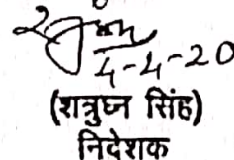 4-4-20
(शत्रुघ्न सिंह)
निदेशक